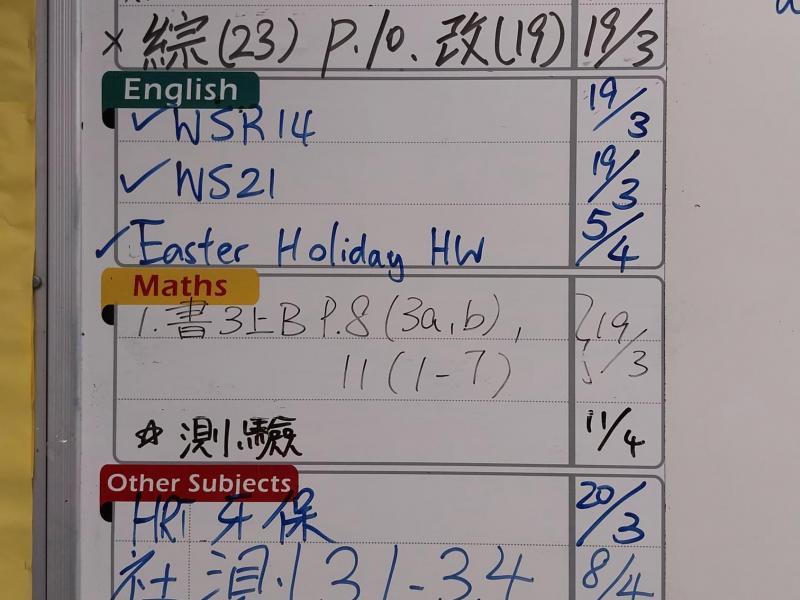 × 綜(23) P.10. 改(19) 19/3
English
✓WSR14 19/3
✓WS21 19/3
✓Easter Holiday HW 5/4
Maths
1.書3上B P.8(3a,b),
11(1-7) 19/3
☆ 測驗 11/4
Other Subjects
HRT 牙保 20/3
社 測 31-34 8/4